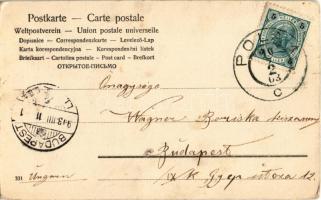 Postkarte - Carte postale
Weltpostverein - Union postale universelle
Dopisnice - Correspondenzkarte - Levelező-Lap
Karta korespondencyjna - Korespondenční lístek
Briefkaart - Cartolina postale - Post card - Brefkort
ОТКРЫТОЕ-ПИСЬМО
POLA
C
BUDAPEST
Wagner Boriska
Budapest
331
Ungarn